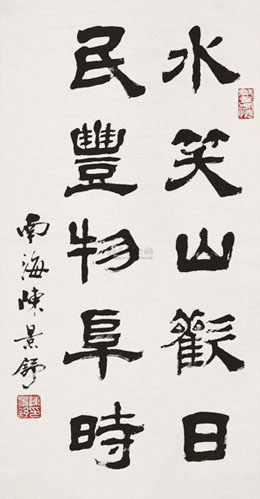 水笑山歡日
民豐物阜時
南海陳景舒